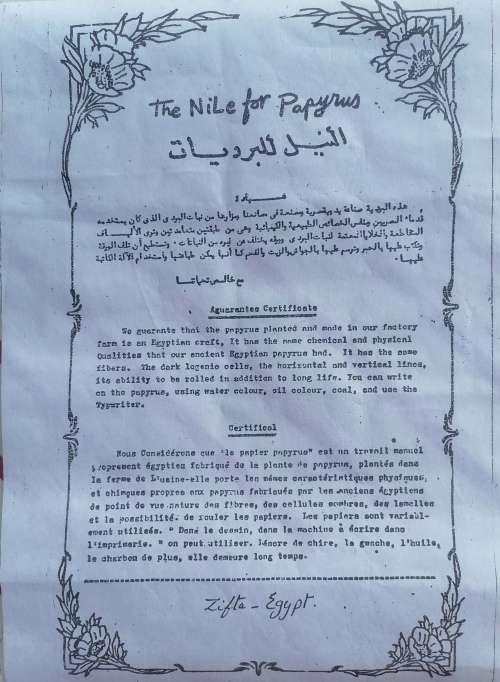 The Nile for Papyrus
النيل للبرديات
شهادة
هذه البردية صناعة يدوية مصرية ومصنعة فى مصانعنا ومزارعنا من نبات البردى الذى كان يستخدمه
قدماء المصريين وبنفس الخصائص الطبيعية والكيميائية وهى من طبقتين متعامدتين وترى الأليـــاف
المتقاطعة والخلايا المعتمة لنبات البردى
مع خالص تحياتنا
Aguarantes Certificate
We guarante that the papyrus planted and made in our factory
farm is an Egyptian craft, It has the same chemical and physical
Qualities that our ancient Egyptian papyrus had. It has the same
fibers. The dark logenic cells, the horizontal and vertical lines,
its ability to be rolled in addition to long life. You can write
on the papyrus, using water colour, oil colour, coal, and use the
Typwriter.
Certifical
Nous Considérons que "le papier papyrus" est un travail manuel
propement égyptien fabriqué de la plante de papyrus, plantés dans
la ferme de L'usine-elle porte les mémes caractéristiques physiques,
et chimques propres aux papyrus fabriqués par les anciens égyptiens
de point de vue nature des fibres, des cellules sombres, des lamelles
et la possibilité. de rouler les papiers. Les papiers sont variabl-
ement utilisés. " Dans le dessin, dans la machine à écrire dans
l'imprimerie. " on peut utiliser. l'encre de chire, la gouche, l'huile,
le charbon de plus, elle demeure long temps.
Zifta - Egypt.